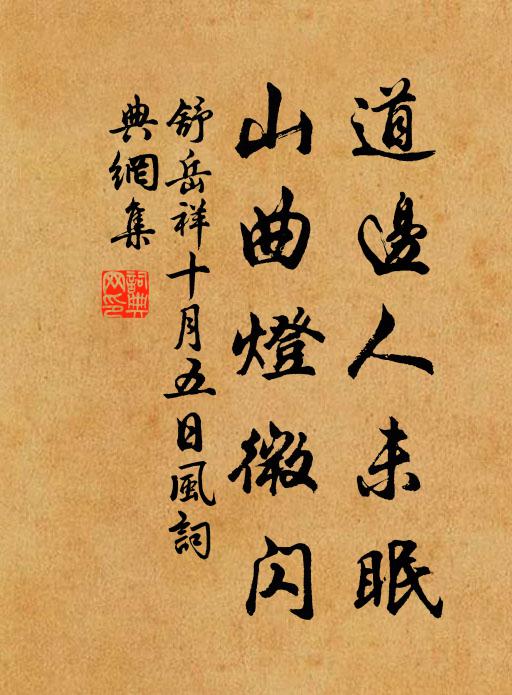 道邊人未眠
山曲燈微閃
舒岳祥十月五日風詞
典網集
詞典网印